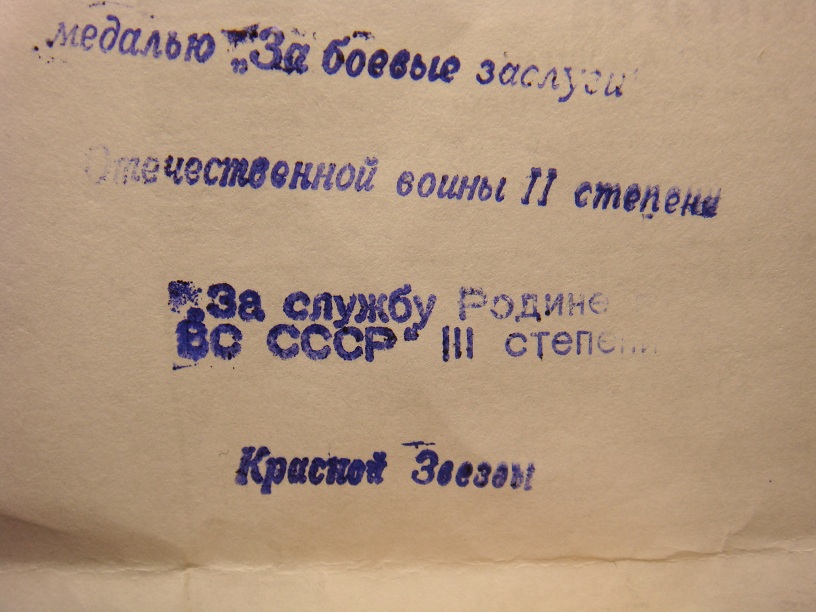 медалью „За боевые заслуги"
Отечественной войны II степени
„За службу Родине
ВС СССР“ III степени
Красной Звезды